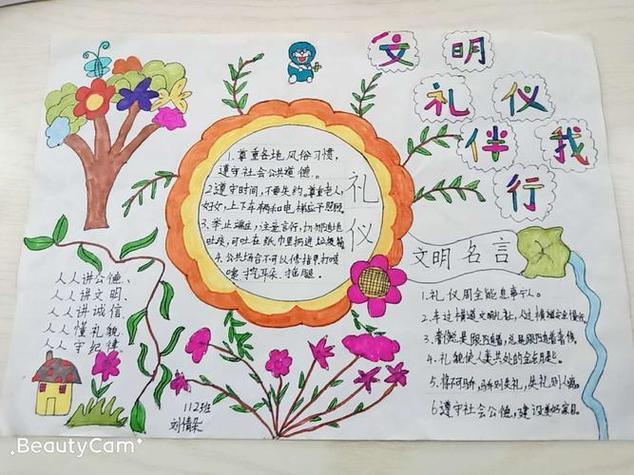 文明
礼仪
伴我
行
礼仪
1.尊重各地风俗习惯,
遵守社会公共道德.
2.遵守时间,不要失约.尊重老人,
妇女,上下车辆和电梯应予照顾.
3.举止端庄,注意言行,切勿随地
吐痰,可吐在纸巾里扔进垃圾箱
4.公共场合不可以修指甲打喷
嚏,挖耳朵、抠腿.
人人讲公德、
人人讲文明、
人人讲诚信
人人懂礼貌、
人人守纪律.
112班
文明名言
1、礼仪周全能息事宁人.
4、礼貌使人类共处的金钥匙.
6遵守社会公德,建设美好家园.
BeautyCam